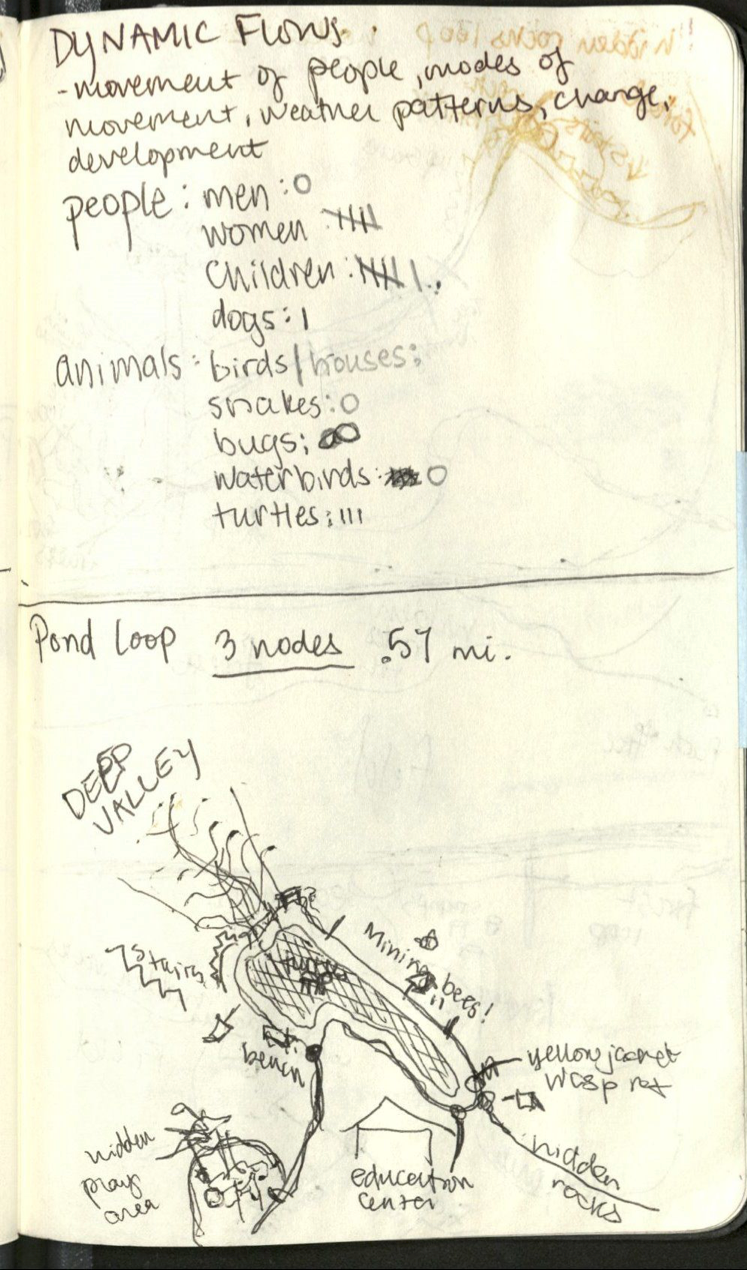 DYNAMIC FLOWS.
-movement of people, modes of
movement, weather patterns, change,
development
people: men: 0
women
children:
dogs: 1
animals: birds/houses:
snakes: 0
bugs: ∞
waterbirds: 0
turtles: III
Pond Loop 3 nodes .57 mi.
DEEP
VALLEY
Stairs
turtles
Mining bees!
bench
yellowjacket
wasp
hidden
play
area
education
center
hidden
rocks